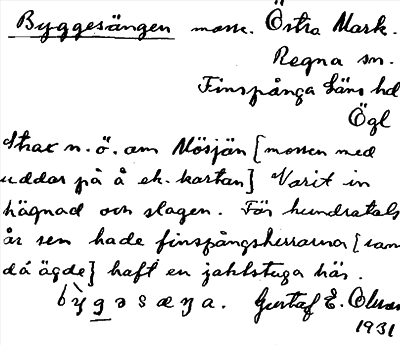 Byggesängen mosse. Östra Mark.
Regna sn.
Finspånga läns hd
Ögl
Strax n.ö. om Mösjön [mossen med
uddar på å ek. kartan] Varit in
hägnad och slagen. För hundratals
år sen hade finspångsherrarna [som
då ägde] haft en jaktstuga här.
Gustaf E. Olsson
1931